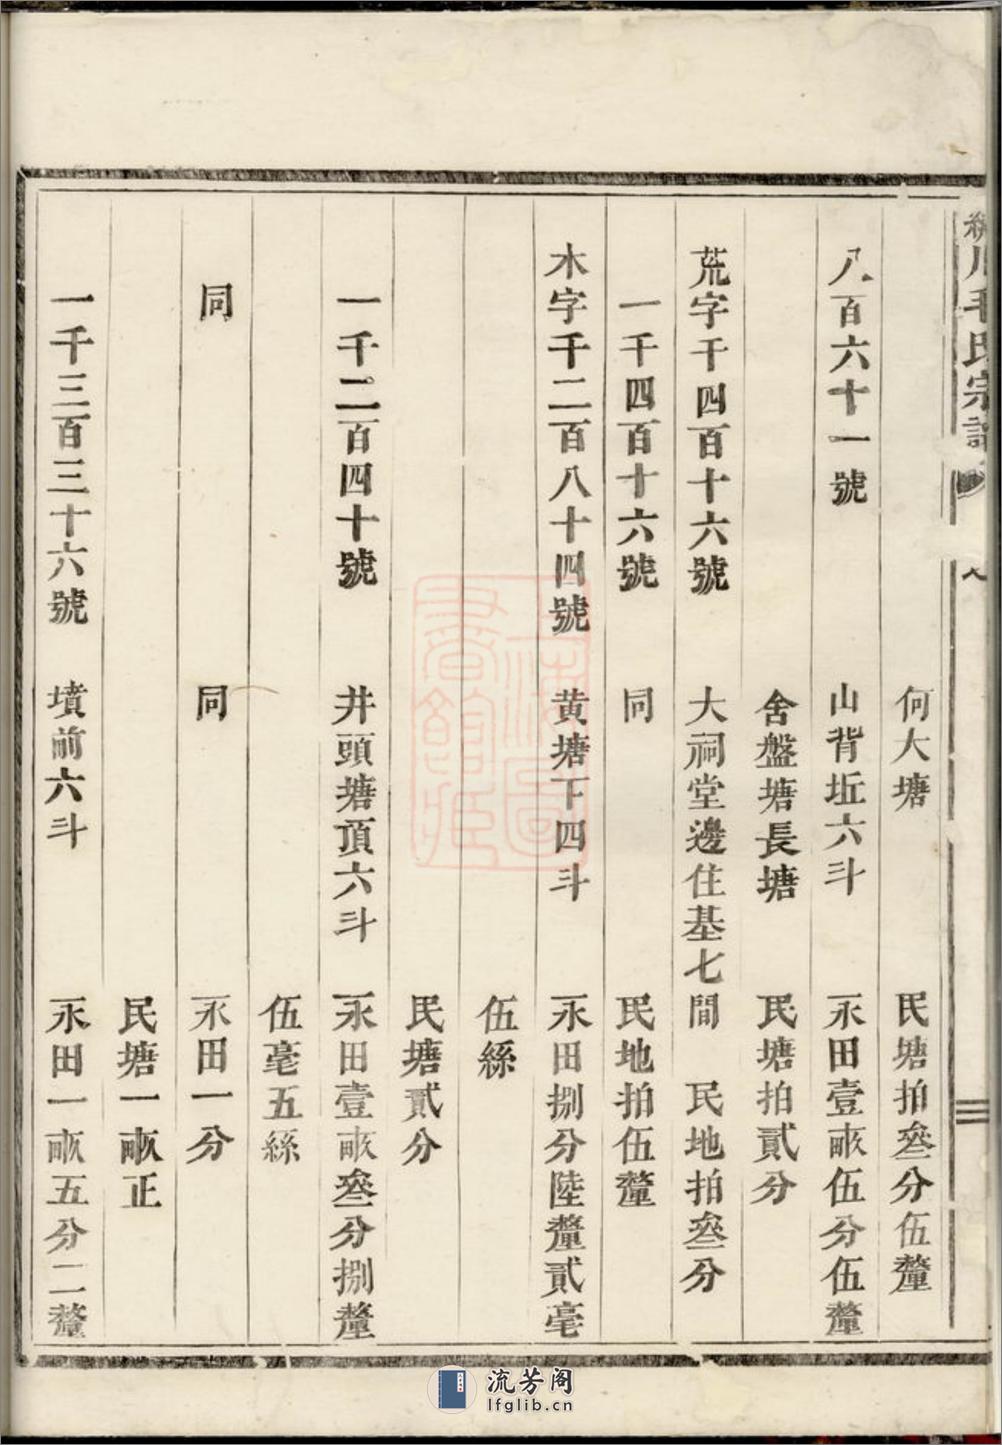 川毛氏宗譜
何大塘 民塘拍叁分伍釐
八百六十一號 山背坵六斗 永田壹畝伍分伍釐
舍盤塘長塘 民塘拍貳分
荒字千四百十六號 大祠堂邊住基七間 民地拍叁分
一千四百十六號 同 民地拍伍釐
木字千二百八十四號 黄塘下四斗 永田捌分陸釐貳毫
伍絲
民塘貳分
一千二百四十號 井頭塘頂六斗 永田壹畝叁分捌釐
伍毫五絲
同 同 永田一分
民塘一畝正
一千三百三十六號 墳前六斗 永田一畝五分二釐
上海圖書館藏
流芳阁
lfglib.cn